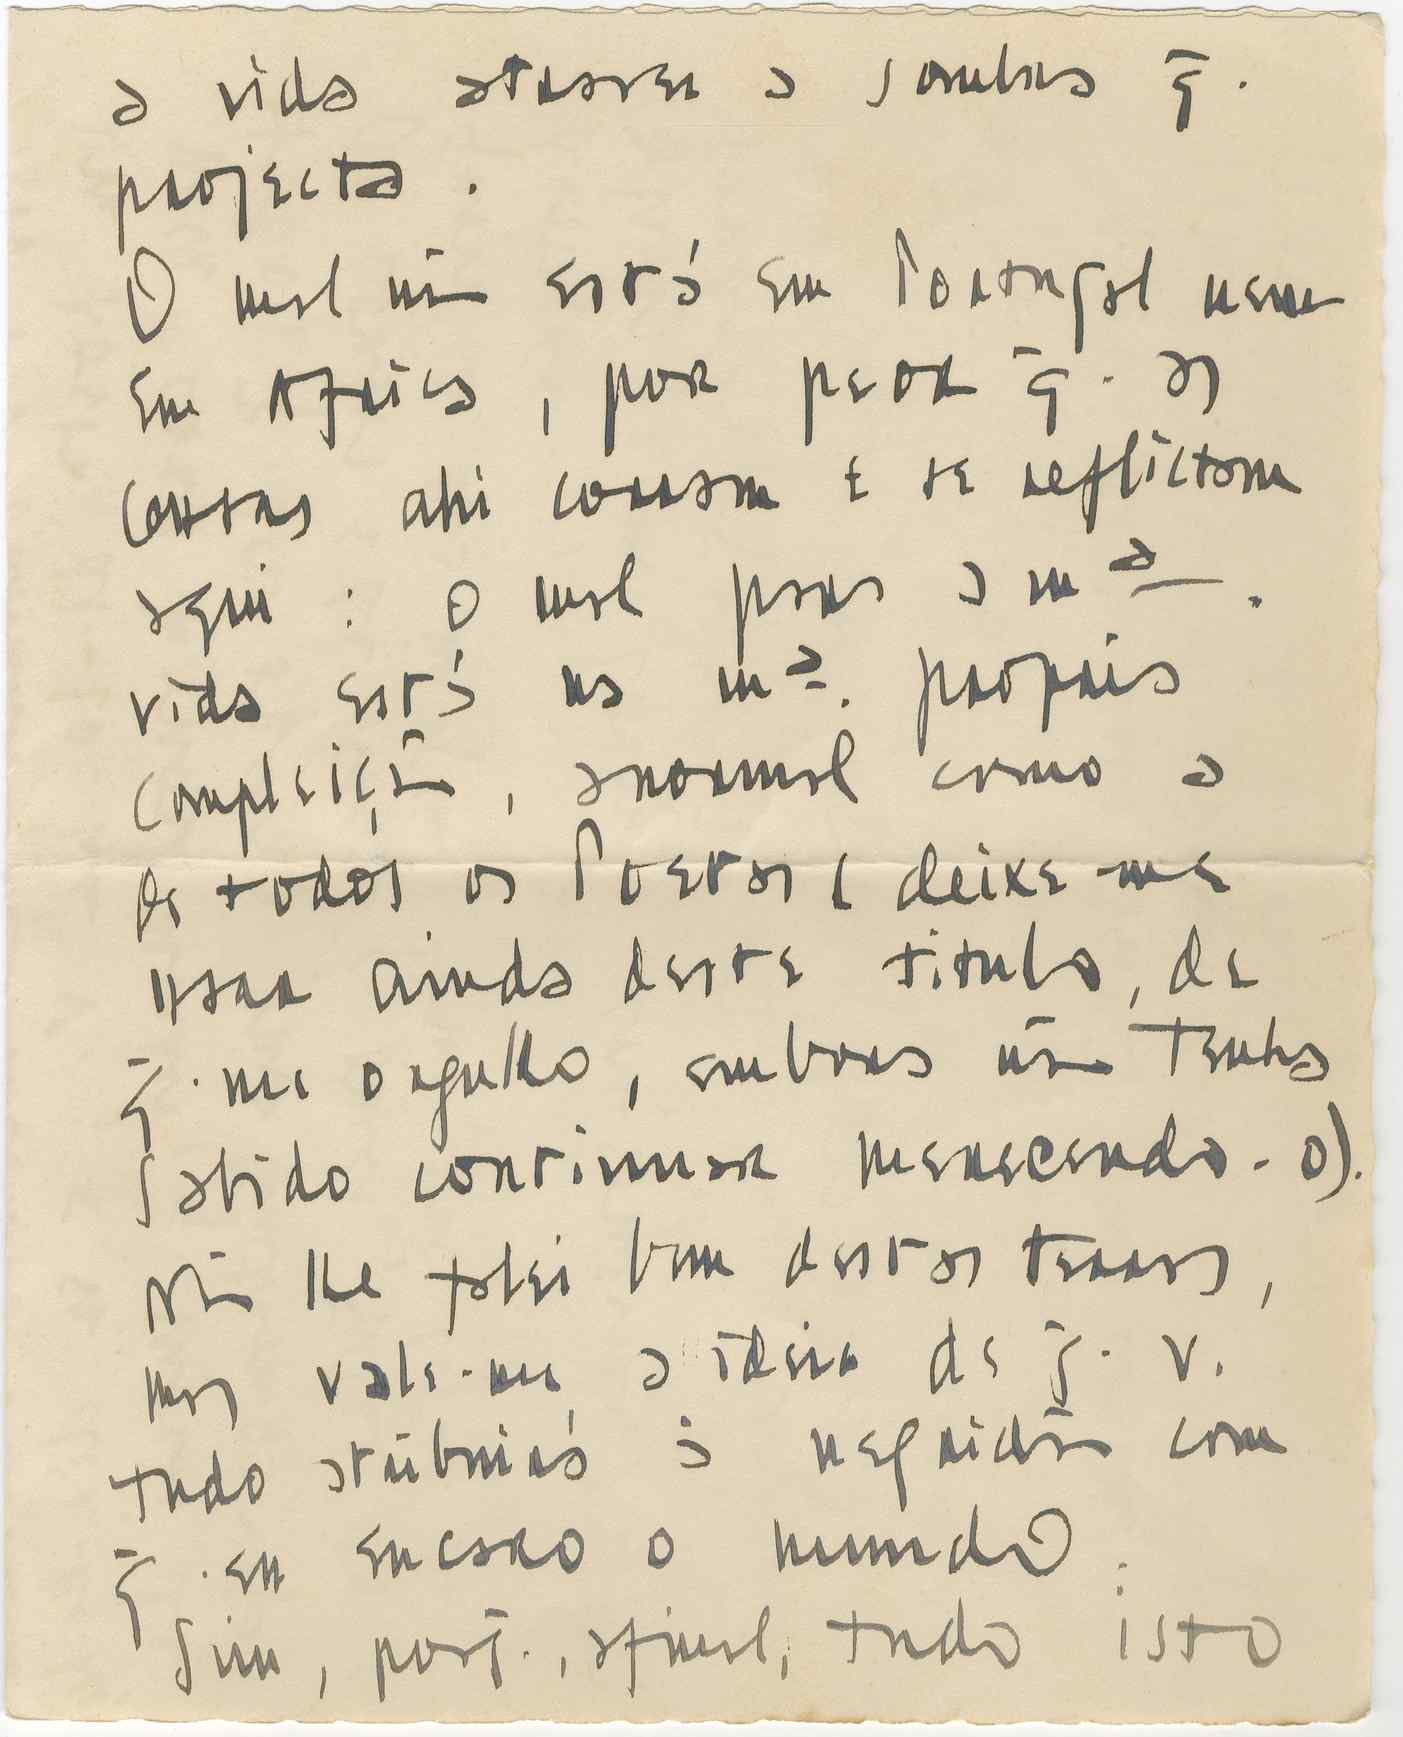 a vida atravez a sombra q̄.
projecta.
O mal nã está em Portugal nem
em Africa, por peor q̄. as
coisas ahi corram e se reflictam
aqui: o mal para a mª.
vida está na mª. propria
compleiçã, anormal como a
de todos os Poetas (deixe-me
usar ainda deste titulo, de
q̄. me orgulho, embora nã tenha
sabido continuar merecendo-o).
Nã lhe falei bem destas terras,
mas vale-me a ideia de q̄. v.
tudo atribuirá á negridã com
q̄. eu encaro o mundo.
Sim, porq̄., afinal, tudo isto